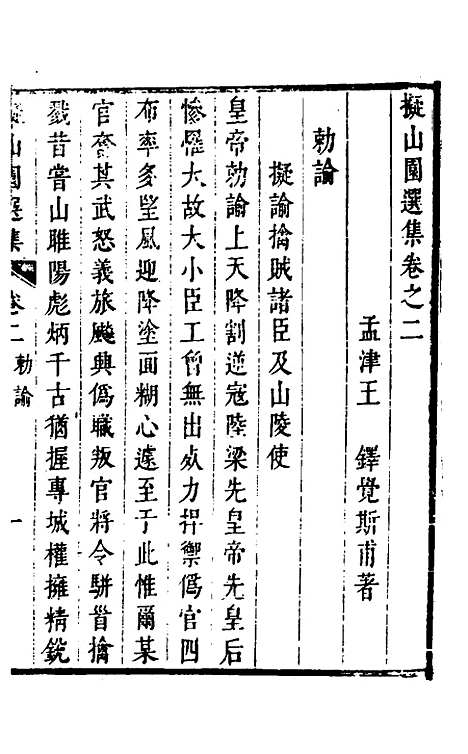 擬山園選集卷之二
孟津王　鐸覺斯甫著
勅諭
擬諭擒賊諸臣及山陵使
皇帝勅諭上天降割逆寇陸梁先皇帝先皇后
慘罹大故大小臣工曾無出死力捍禦偽官四
布率多望風迎降塗面糊心遠至于此惟爾某
官奮其武怒義旅飈興偽職叛官將令駢首擒
戮昔嘗山睢陽彪炳千古猶握專城權擁精銳
擬山園選集　卷二　勅諭　一